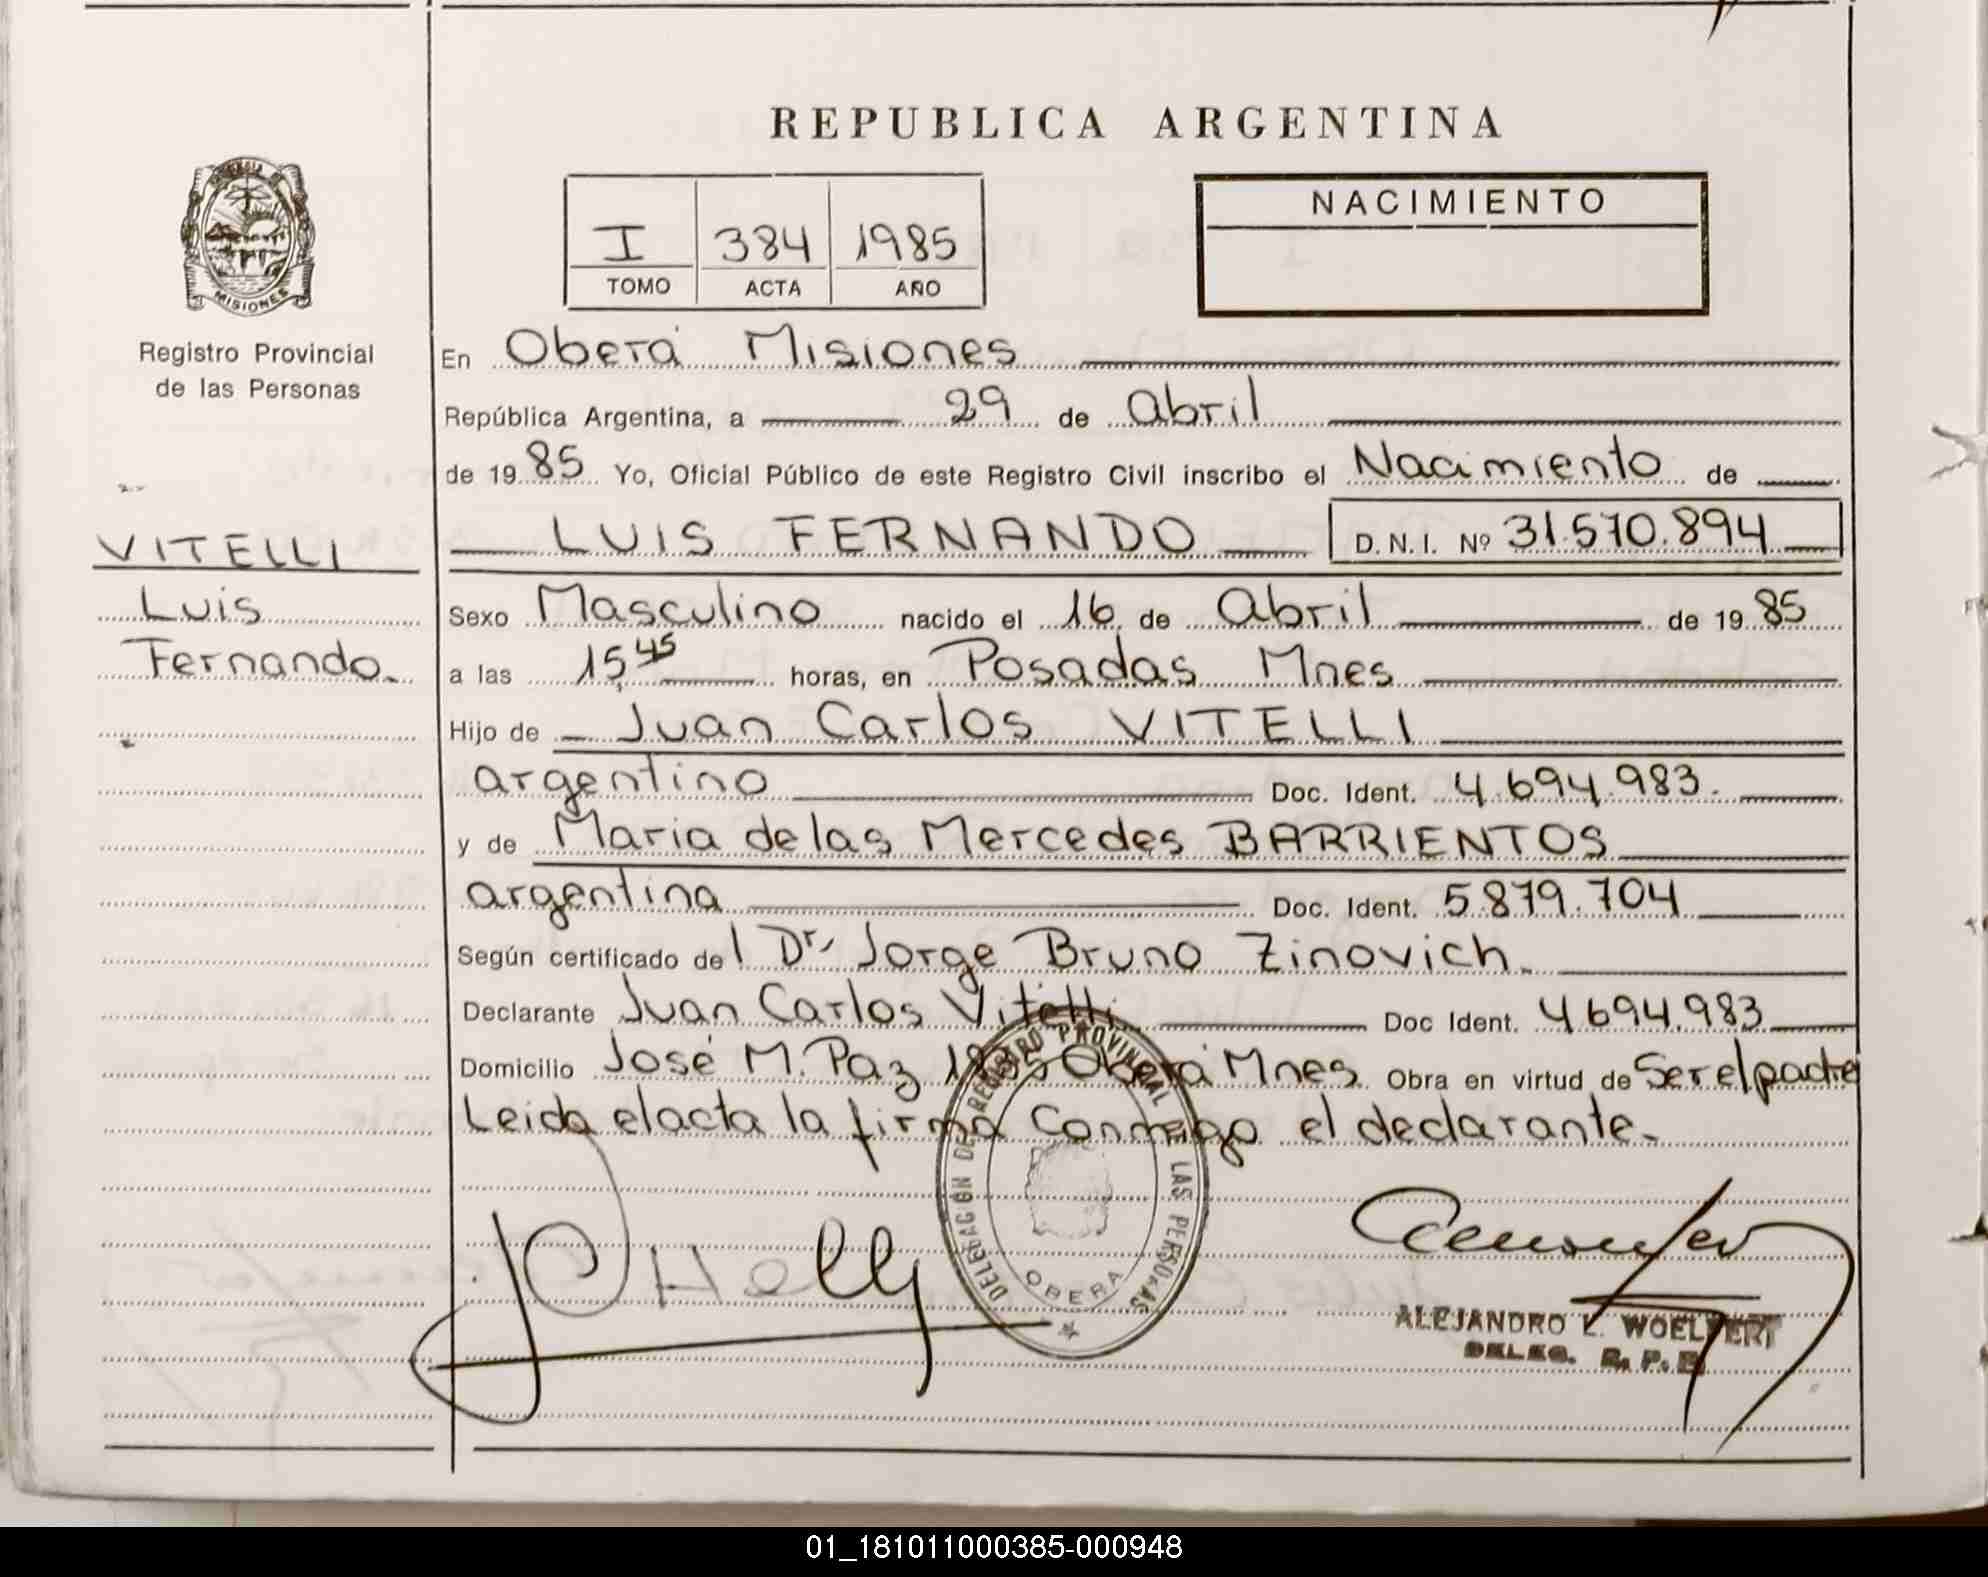 REPUBLICA ARGENTINA
NACIMIENTO
I 384 1985
TOMO ACTA AÑO
MISIONES
Registro Provincial
de las Personas
VITELLI
Luis
Fernando.
En Oberá Misiones
República Argentina, a 29 de Abril
de 1985 Yo, Oficial Público de este Registro Civil inscribo el Nacimiento de
LUIS FERNANDO D.N.I. Nº 31.570.894
Sexo Masculino nacido el 16 de Abril de 1985
a las 15,45 horas, en Posadas Mnes
Hijo de Juan Carlos VITELLI
argentino Doc. Ident. 4.694.983.
y de Maria de las Mercedes BARRIENTOS
argentina Doc. Ident. 5.879.704
Según certificado del Dr. Jorge Bruno Zinovich.
Declarante Juan Carlos Vitelli Doc Ident. 4694.983
Domicilio José M. Paz Oberá Mnes. Obra en virtud de Ser el padre
Leida el acta la firma Conmigo el declarante.
DELEGACIÓN DEL REGISTRO PROVINCIAL DE LAS PERSONAS
OBERA
ALEJANDRO L. WOELFERT
DELEG. R. P. P.
01_181011000385-000948